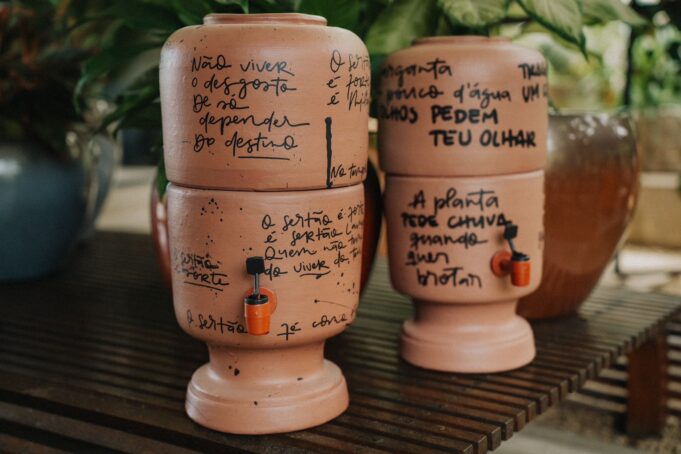 Não viver
o desgosto
De só
depender
Do destino
O sertão
é forte
é
No
O sertão é
é sertão
Quem não
do viver do
sertão
forte
O sertão
té como
garganta
pouco d'água
OLHOS PEDEM
TEU OLHAR
UM
A planta
PEDE CHUVA
quando
quer
brotar